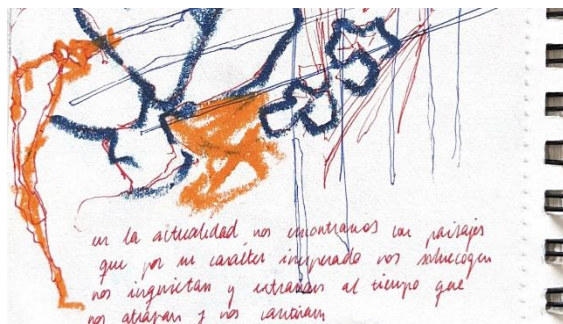 en la actualidad nos encontramos con paisajes
que por su carácter inesperado nos sobrecogen
nos inquietan y extrañan al tiempo que
nos atrapan y nos cautivan